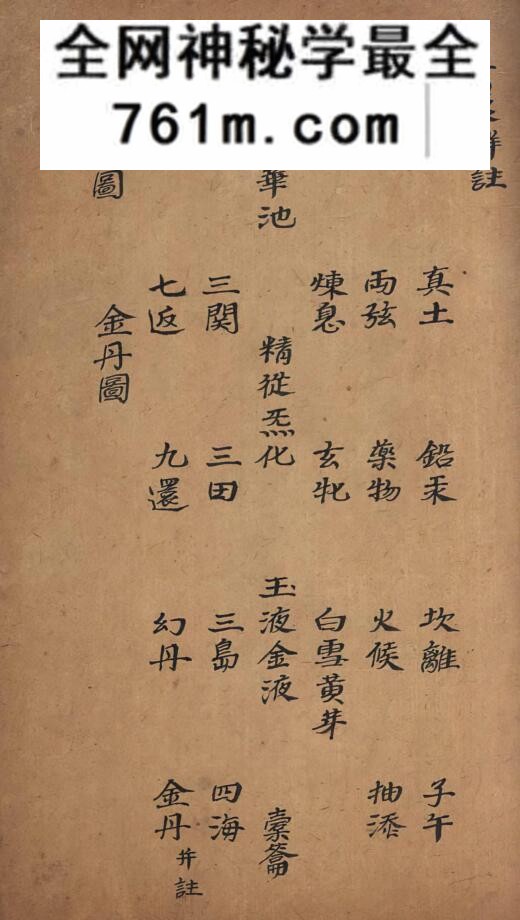 全网神秘学最全
761m.com
詳註
真土 鉛汞 坎離 子午
両弦 藥物 火候 抽添
煉息 玄牝 白雪黃芽
華池 精從炁化 玉液金液 橐籥
三関 三田 三島 四海
七返 九還 幻丹 金丹 并註
圖 金丹圖